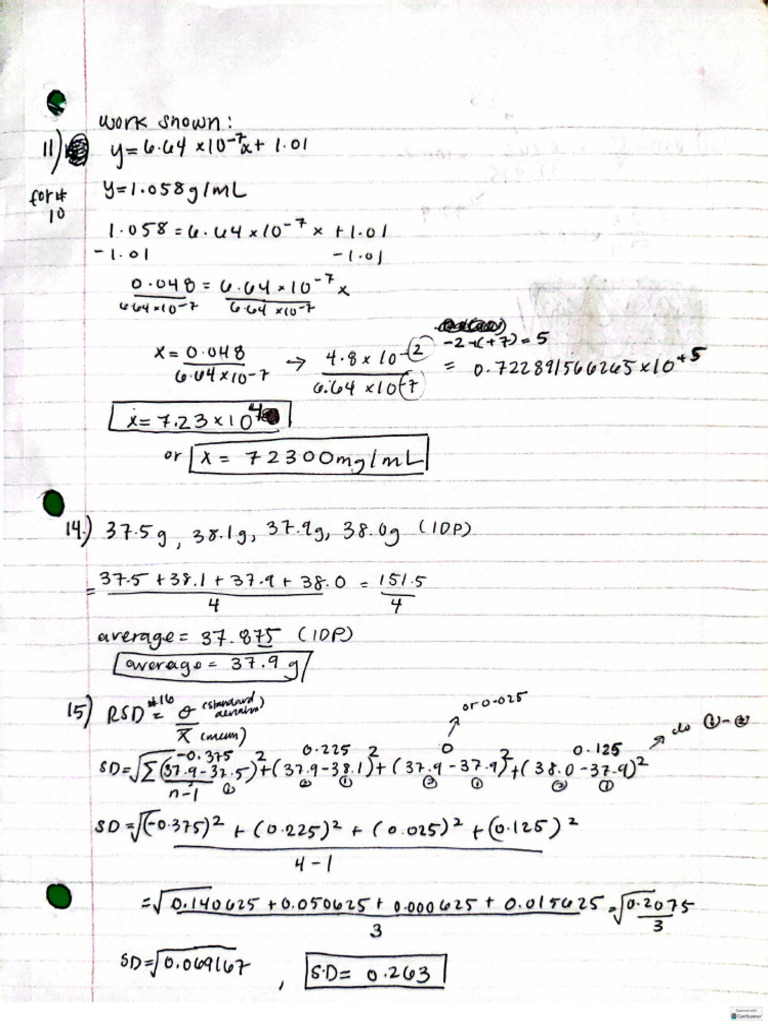 work shown:
11) y=6.64 ×10⁻⁷x + 1.01
for #
10
y=1.058g/mL
1.058 = 6.64×10⁻⁷ x + 1.01
-1.01 -1.01
0.048 = 6.64×10⁻⁷ x
6.64×10⁻⁷ 6.64×10⁻⁷
-2-(+7)=5
x = 0.048 → 4.8 × 10⁻² = 0.722891566265×10⁺⁵
6.64×10-7 6.64×10⁻⁷
x=7.23×10⁴
or x = 72300mg/mL
14.) 37.5g, 38.1g, 37.9g, 38.0g (1DP)
= 37.5 + 38.1 + 37.9 + 38.0 = 151.5
4 4
average = 37.875 (1DP)
average = 37.9 g
or 0.025
15) RSD #16 = σ (standard deviation)
x̄ (mean)
-0.375 0.225 0 0.125 do ②-①
SD=√Σ(37.9-37.5)²+(37.9-38.1)²+(37.9-37.9)²+(38.0-37.9)²
n-1 ② ② ① ② ① ② ①
SD=√(-0.375)² + (0.225)² + (0.025)² + (0.125)²
4-1
=√0.140625 + 0.050625 + 0.000625 + 0.015625 = √0.2075
3 3
SD=√0.069167 , SD= 0.263
Scanned with
CamScanner